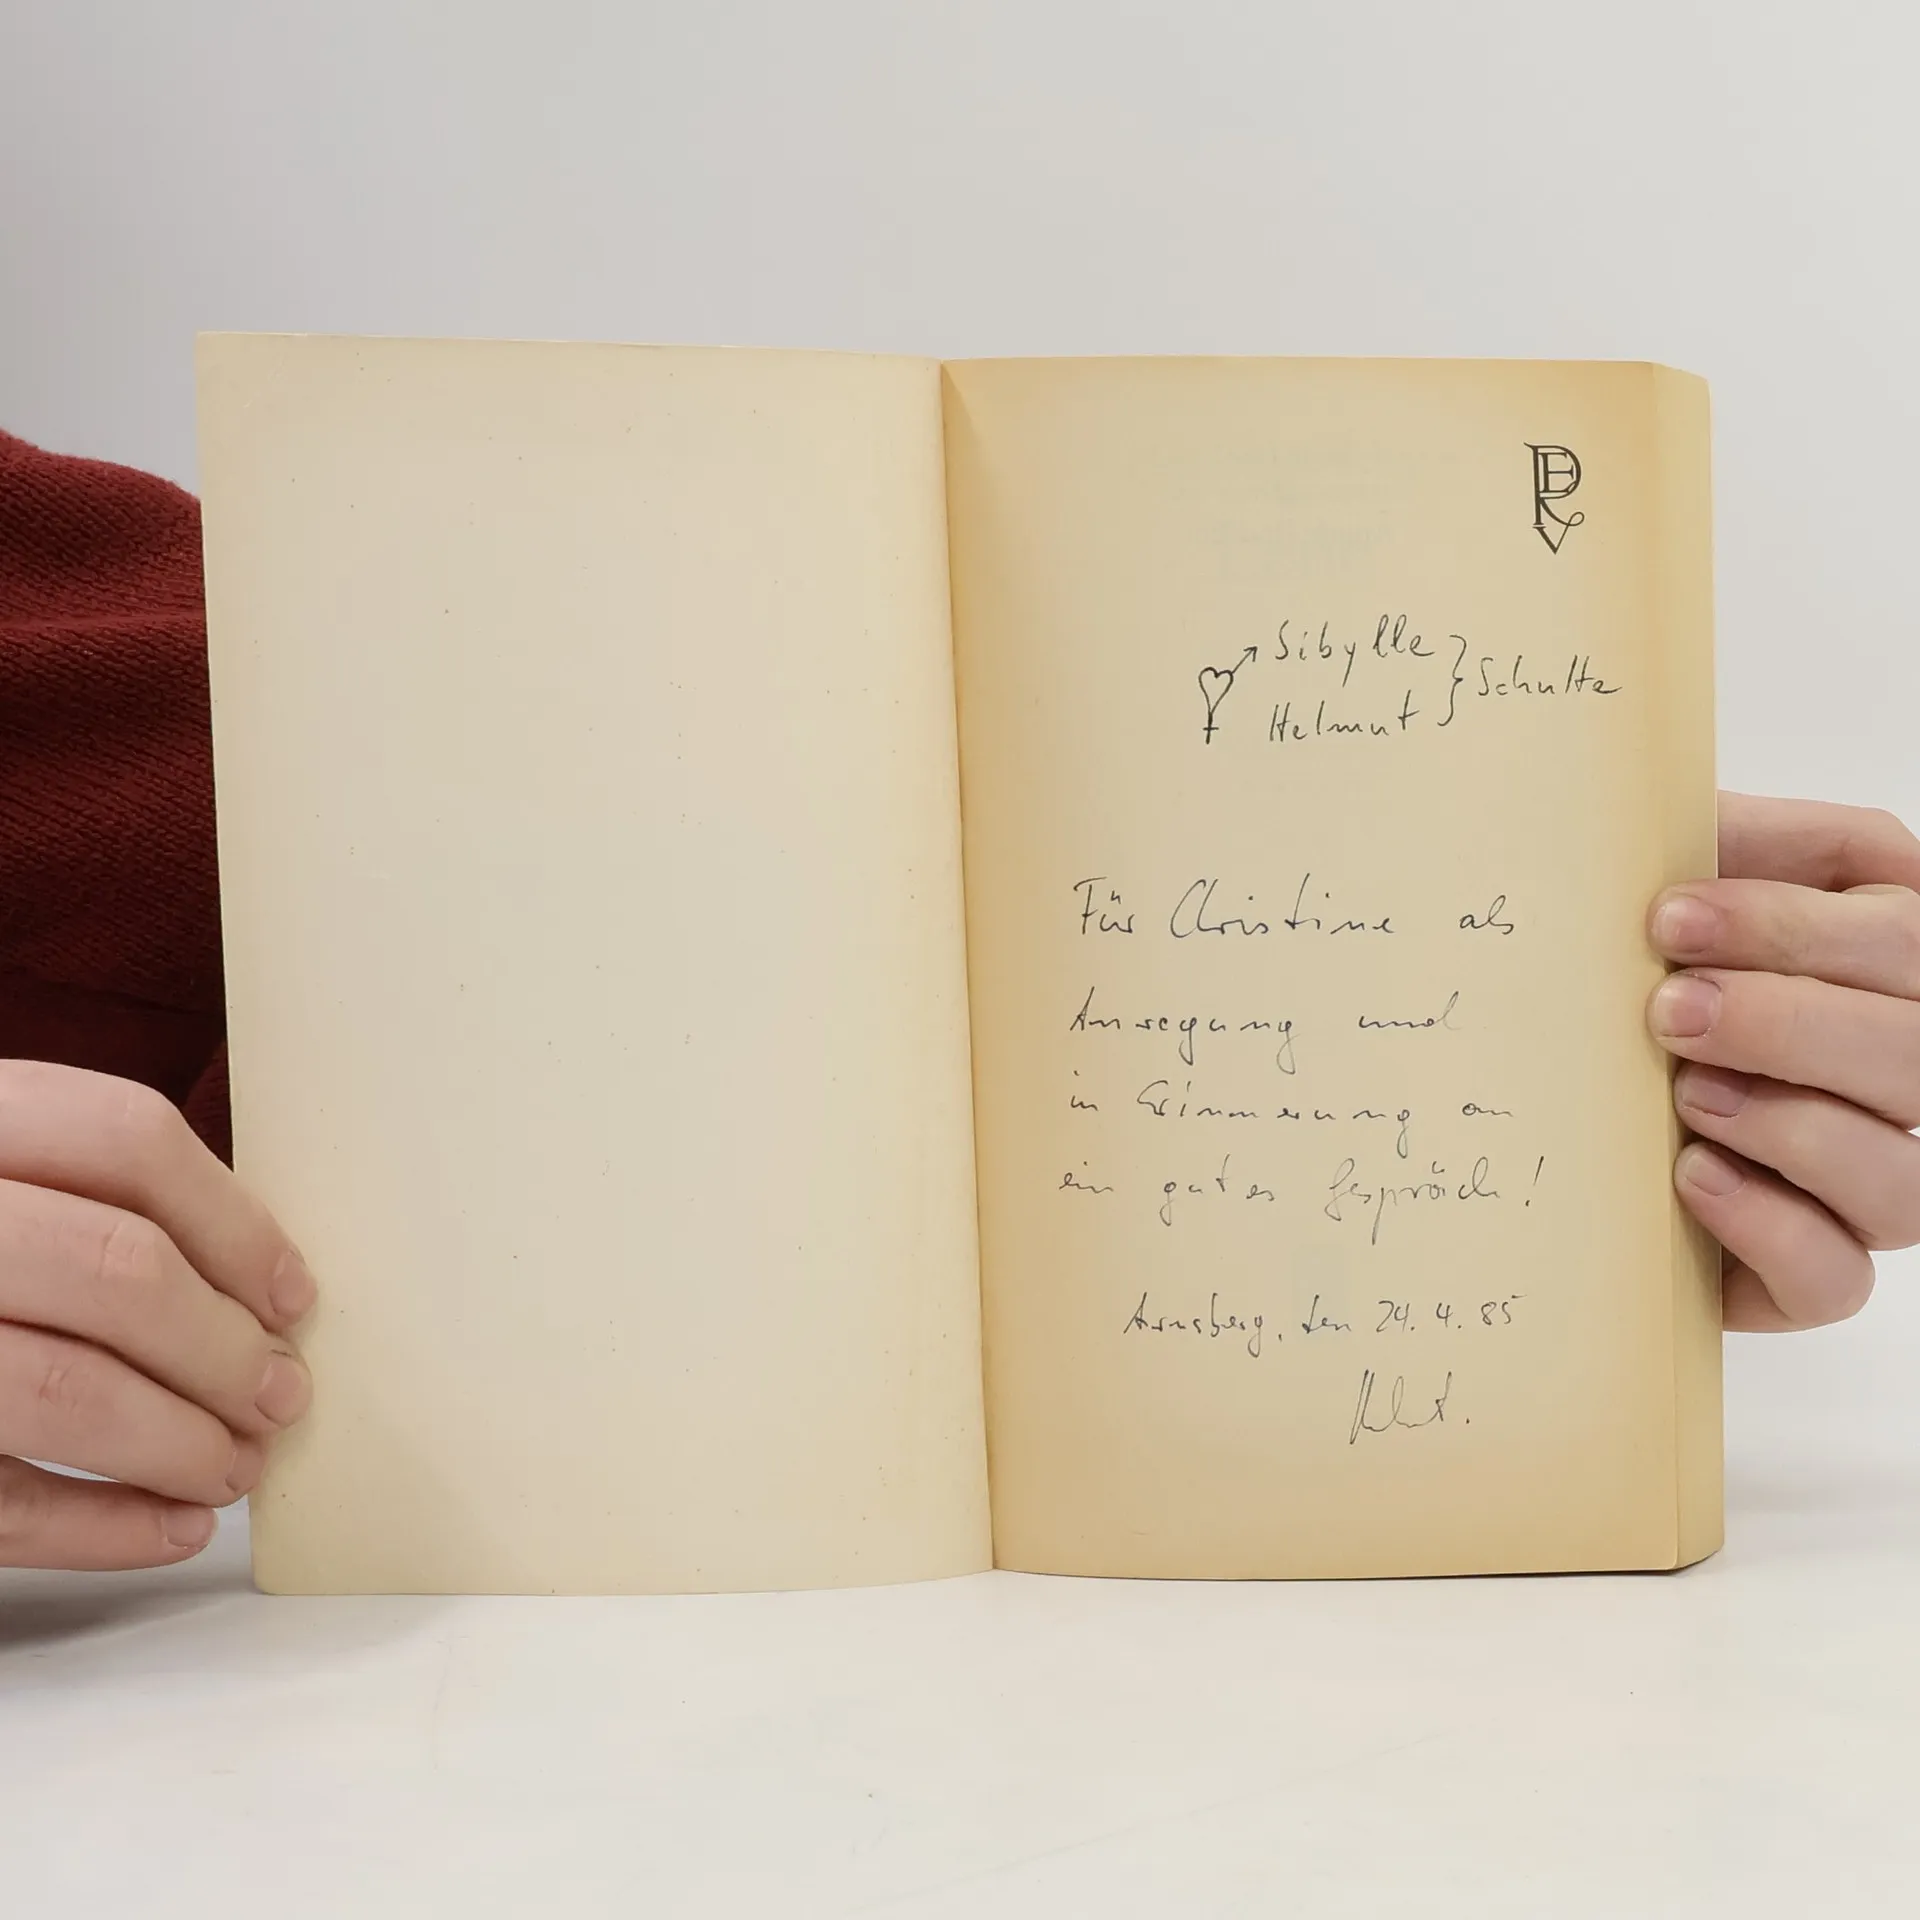 PERV
Sibylle
Helmut
} Schulte
Für Christine als
Anregung und
in Erinnerung an
ein gutes Gespräch!
Arnsberg, den 24. 4. 85
Helmut.